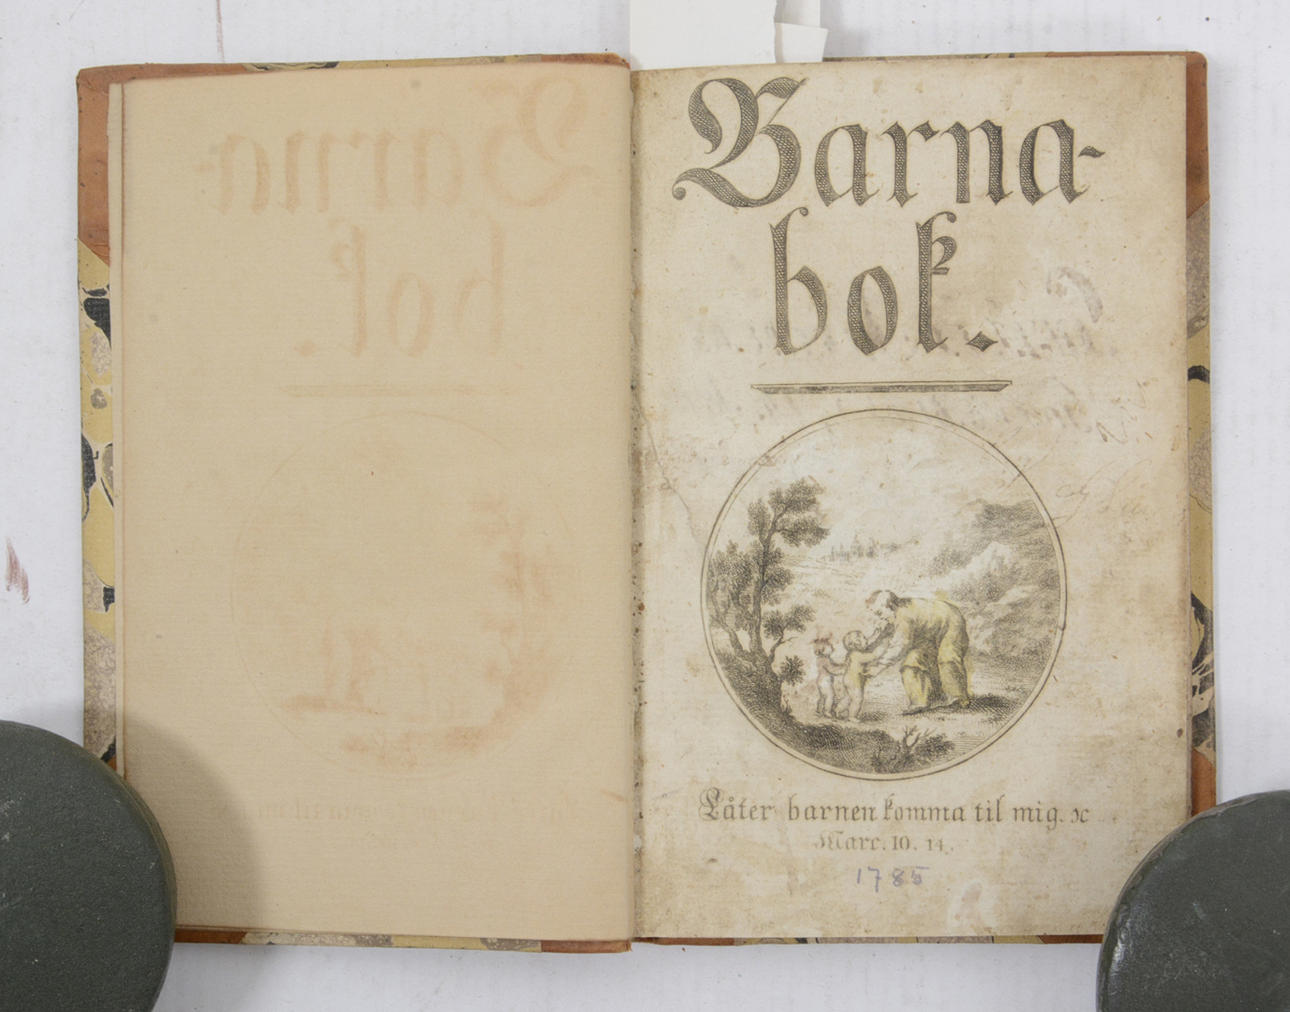 Barna-
bok.
Låter barnen komma til mig. ꝛc
Marc. 10. 14.
1785